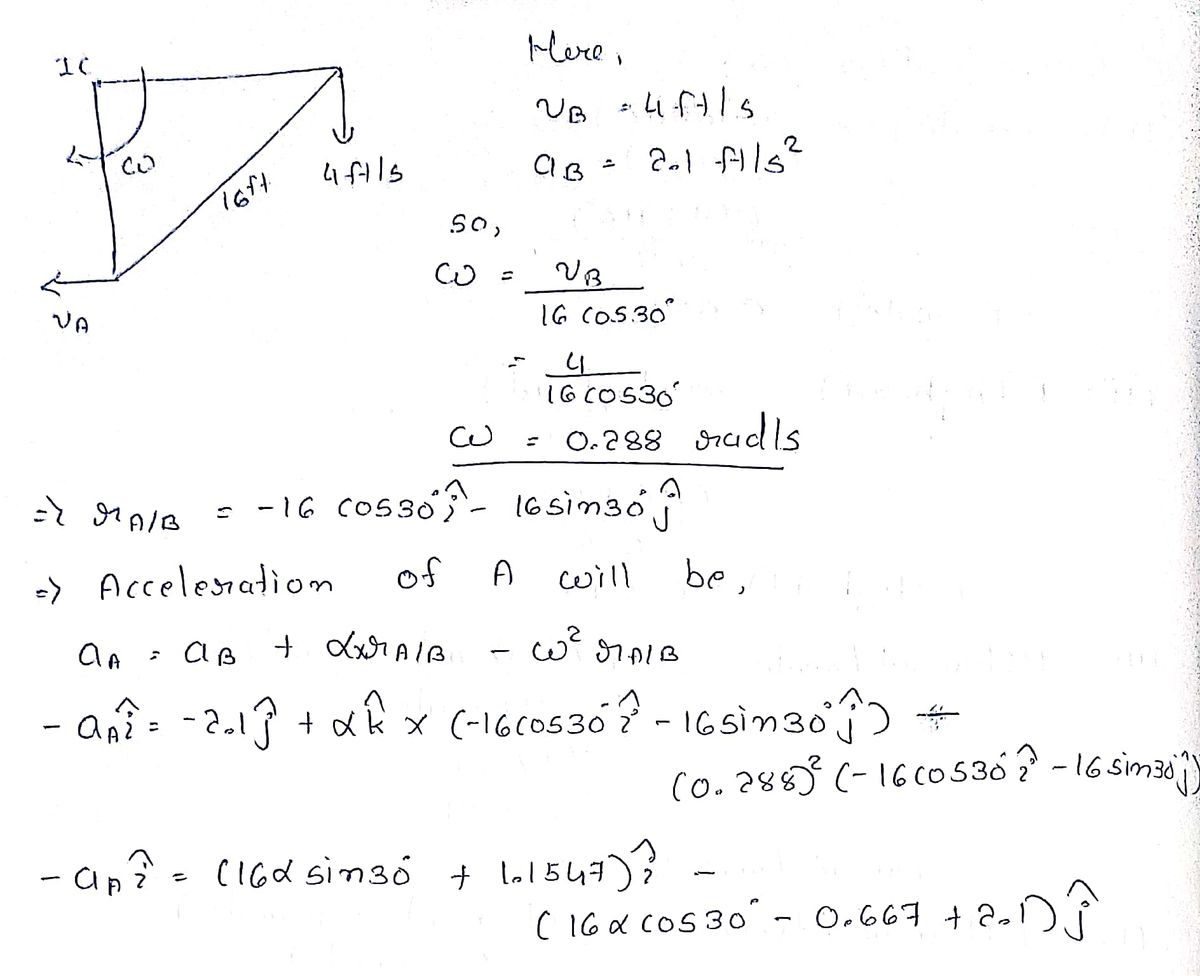 IC
ω
16ft
4 ft/s
vA
Here,
vB = 4 ft/s
aB = 2.1 ft/s²
so,
ω = vB / 16 cos30°
= 4 / 16 cos30°
ω = 0.288 rad/s
=> rA/B = -16 cos30° î - 16 sin30° ĵ
=> Acceleration of A will be,
aA = aB + α×rA/B - ω² rA/B
- aA î = -2.1 ĵ + α k̂ × (-16 cos30° î - 16 sin30° ĵ) -
(0.288)² (-16 cos30° î - 16 sin30° ĵ)
- aA î = (16α sin30° + 1.1547) î -
(16 α cos30° - 0.667 + 2.1) ĵ